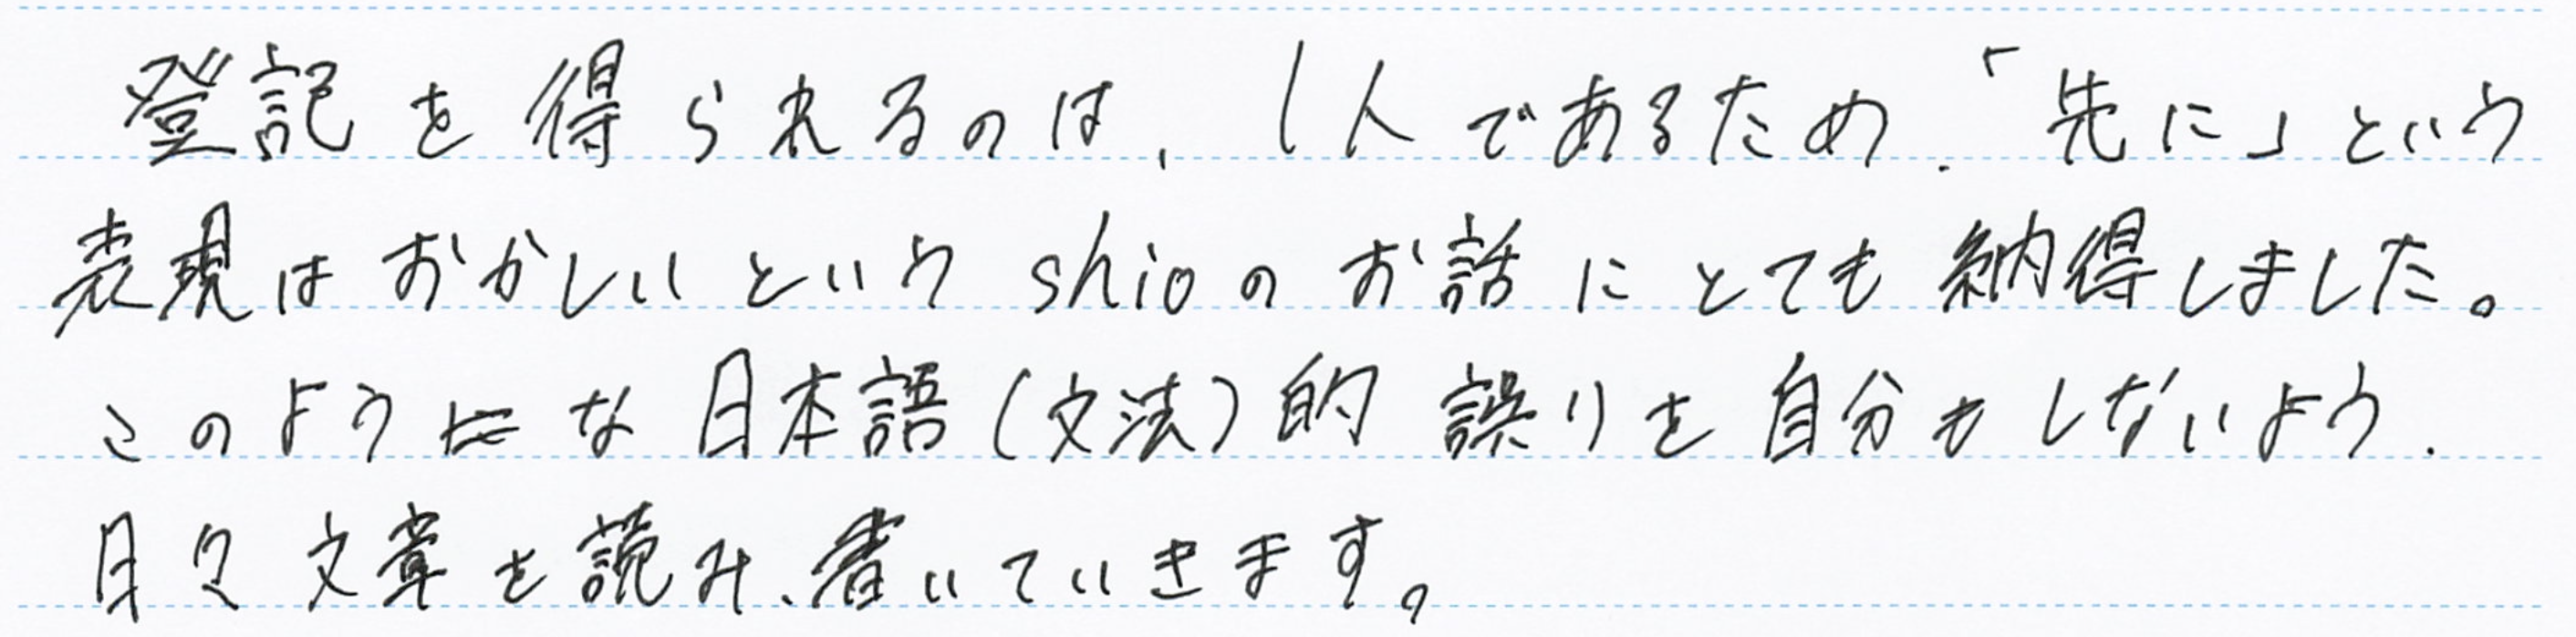 登記を得られるのは、1人であるため、「先に」という
表現はおかしいというshioのお話にとても納得しました。
このような日本語(文法)的誤りを自分もしないよう、
日々文章を読み、書いていきます。